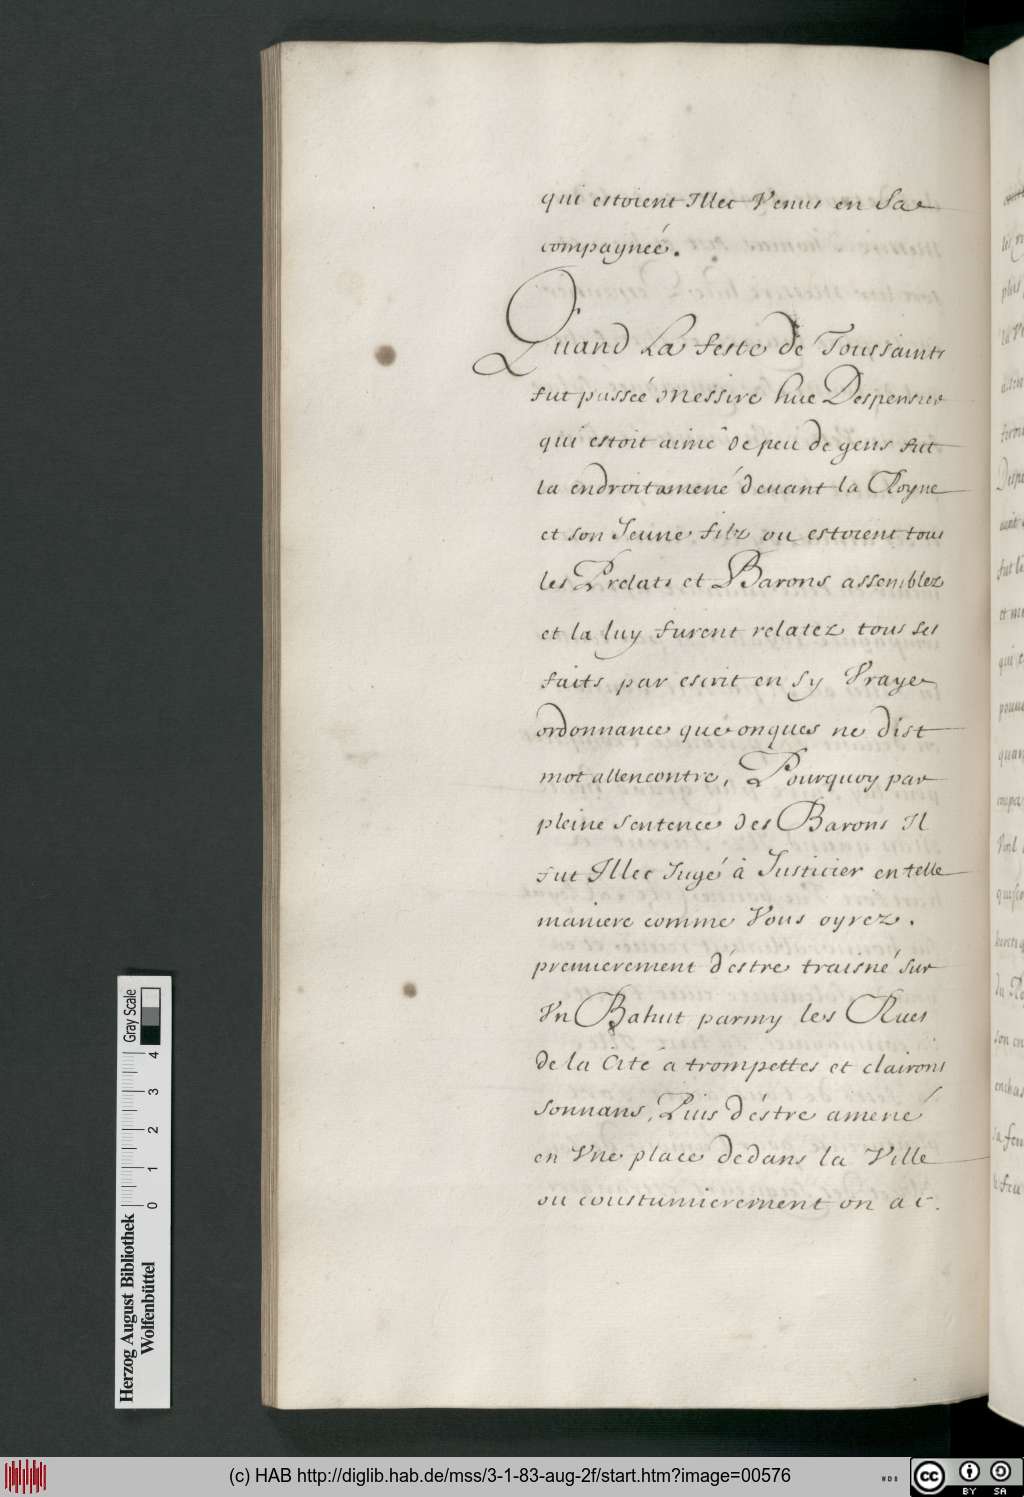 qui estoient Illec Venus en Sa
compagneé.
Quand La feste de Toussaints
fut passeé Messire hue Despensier
qui estoit aimé de peu de gens fut
la endroit amené deuant la Royne
et son Jeune filz ou estoient tous
les Prelats et Barons assemblez
et la luy furent relatez tous ses
faits par escrit en sy Vraye
ordonnance que onques ne dist
mot allencontre, Pourquoy par
pleine sentence des Barons Il
fut Illec Jugé à Justicier en telle
maniere comme Vous oyrez.
premierement d'éstre traisné sur
Vn Bahut parmy les Rues
de la Cité a trompettes et clairons
sonnans, Puis d'éstre amené
en Vne place dedans la Ville
ou coustumierement on a c.
Herzog August Bibliothek
Wolfenbüttel
0 1 2 3 4
Gray Scale
(c) HAB http://diglib.hab.de/mss/3-1-83-aug-2f/start.htm?image=00576
WDB
cc BY SA